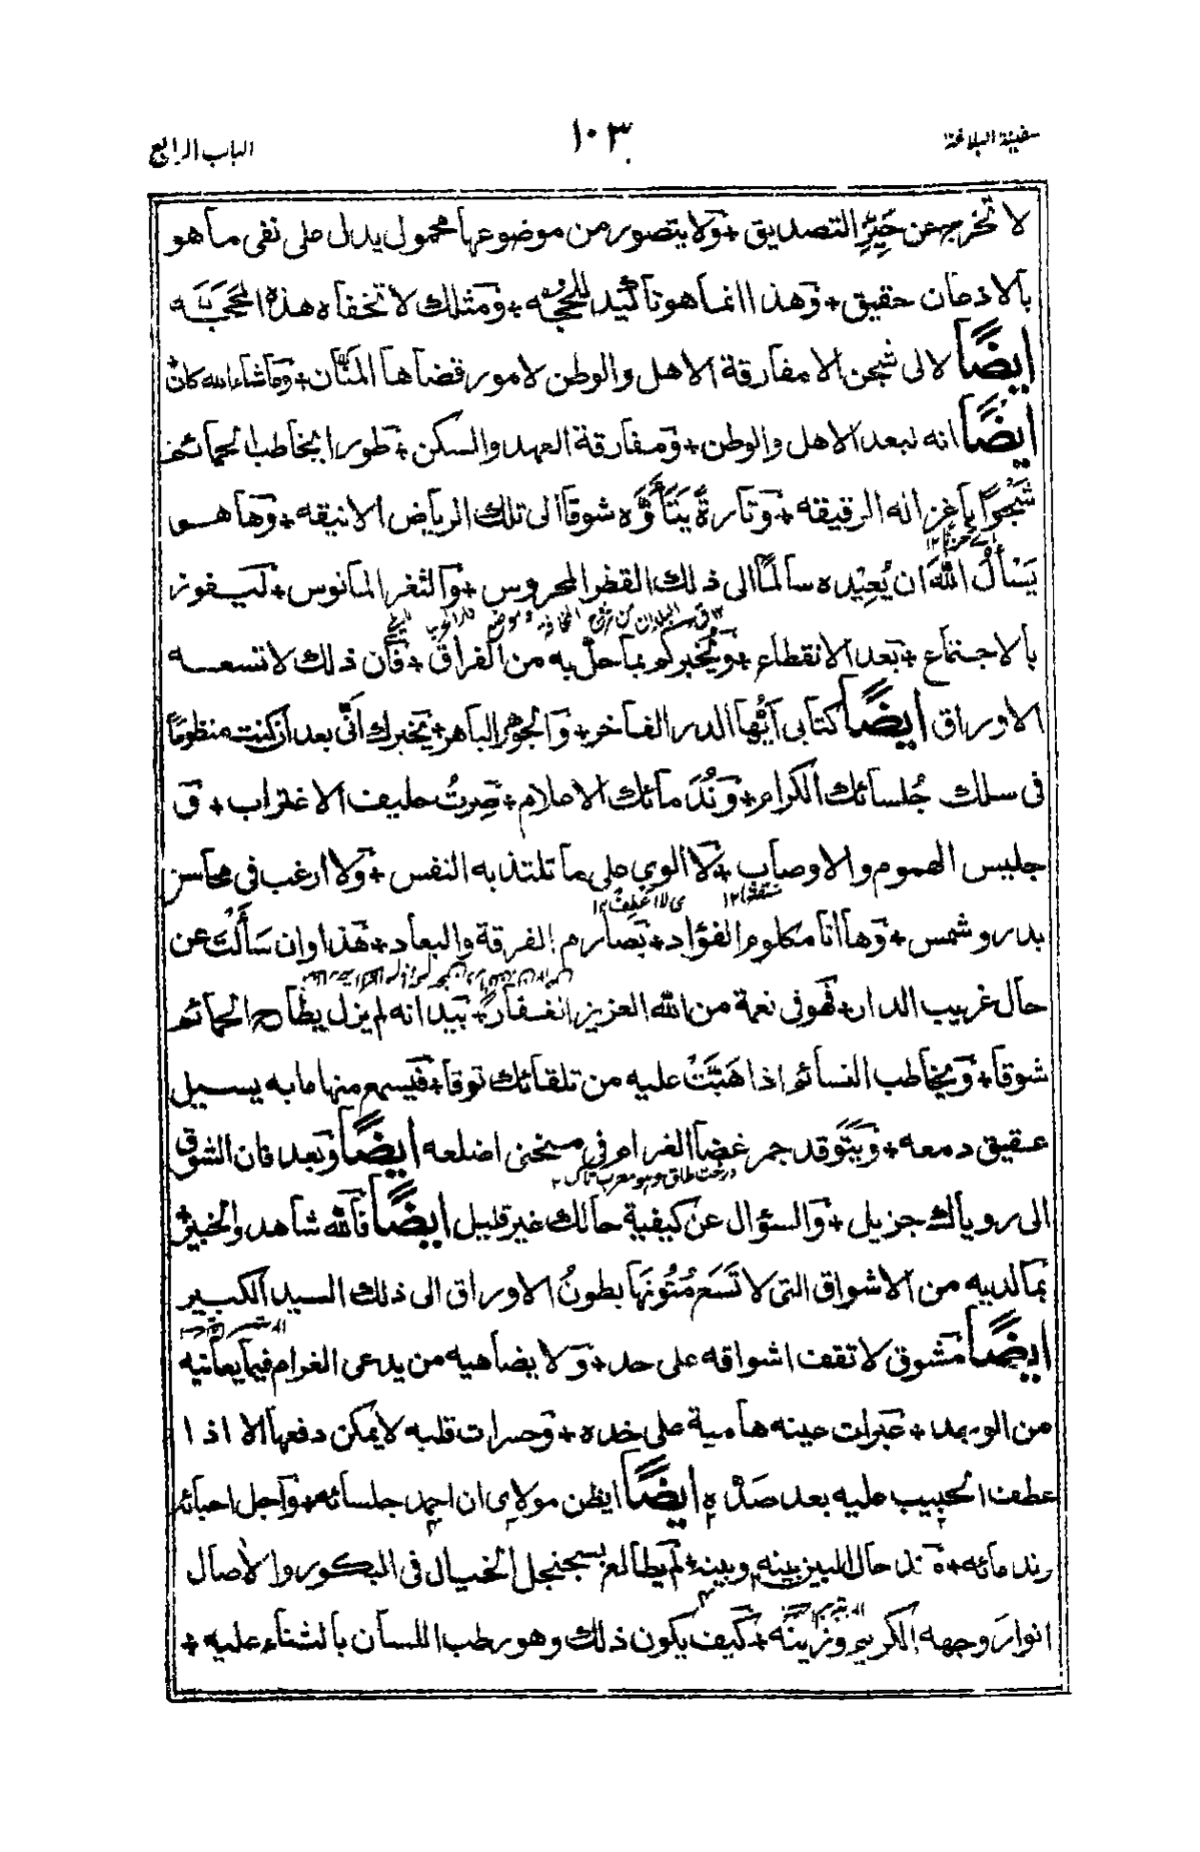 سفينة البلاغة
١٠٣
الباب الرابع
لا تخرج عن حَيِّزِ التصديق + ولا يتصور من موضوعها محمول يدل على نفى ما هو
بالاذعان حقيق + وهذا انما هو تاكيد للحجه + ومثلك لا تخفاه هذه المحجه
ايضًا لا لى شجن الا مفارقة الاهل والوطن لامور قضاها المنان + وما شاء الله كان
ايضًا انه لبعد الاهل والوطن + ومفارقة العهد والسكن + طورا يخاطب الحمائم
شَجْوًا باغزاله الرقيقه + وتارةً يَتَأَوَّه شوقا الى تلك الرياض الانيقه + وها هو
يَسْأَلُ اللهَ ان يُعِيْده سالمًا الى ذلك القطر المحروس + والثغر المانوس + ليفوز
بالاجتماع + بعد الانقطاع + ويخبركم بما حلّ به من الفراق + فان ذلك لا تسعه
الاوراق ايضًا كتابى ايُّها الدر الفاخر + والجوهر الباهر + يخبرك انّى بعد ان كنت منظومًا
فى سلك جُلسائك الكرام + ونُدَمائك الاعلام + صِرتُ حليف الاغتراب + و
جليس الهموم والاوصاب + لا الوي على ما تلتذ به النفس + ولا ارغب فى محاسن
بدر وشمس + وها انا مكلوم الفؤاد + بصارم الفرقة والبعاد + هذا وان سَأَلْتَ عن
حال غريب الدار + فهو فى نعمة من الله العزيز الغفار + بَيْدَ انه لم يزل يطارح الحمائم
شوقا + ويخاطب النسائم اذا هَبَّتْ عليه من تلقائك توقا + فيسمع منها ما به يسيل
عقيق دمعه + ويَتَوَقد جمر غضا الغرام فى منحنى اضلعه ايضًا وبعد فان الشوق
الى روياك جزيل + والسؤال عن كيفية حالك غير قليل ايضًا فالله شاهد والخبير
بما لديه من الاشواق التى لا تَسَع مُتُونَها بطونُ الاوراق الى ذلك السيد الكبير
ايضًا مشوق لا تقف اشواقه على حد + ولا يضاهيه من يدعى الغرام فيما يعانيه
من الوجد + عبرات عينه هامية على خده + وحسرات قلبه لا يمكن دفعها الا اذا
عطف الحبيب عليه بعد صَدِّه ايضًا ايظن مولاى ان احمد جلسائه + واجل احبائه
وندمائه + قد حال البين بينه وبينه + لم يطالع بسجنجل الخيال فى البكور والاصال
انوارَ وجهه الكريم وزينَه + كيف يكون ذلك وهو رطب اللسان بالثناء عليه +